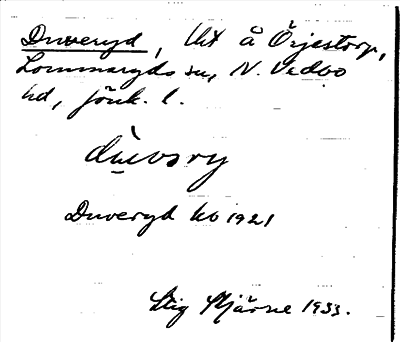 Duveryd, lht å Örjestorp,
Lommaryds sn, N. Vedbo
hd, Jönk. l.
dùvsry
Duveryd ko 1921
Stig Mjärne 1933.